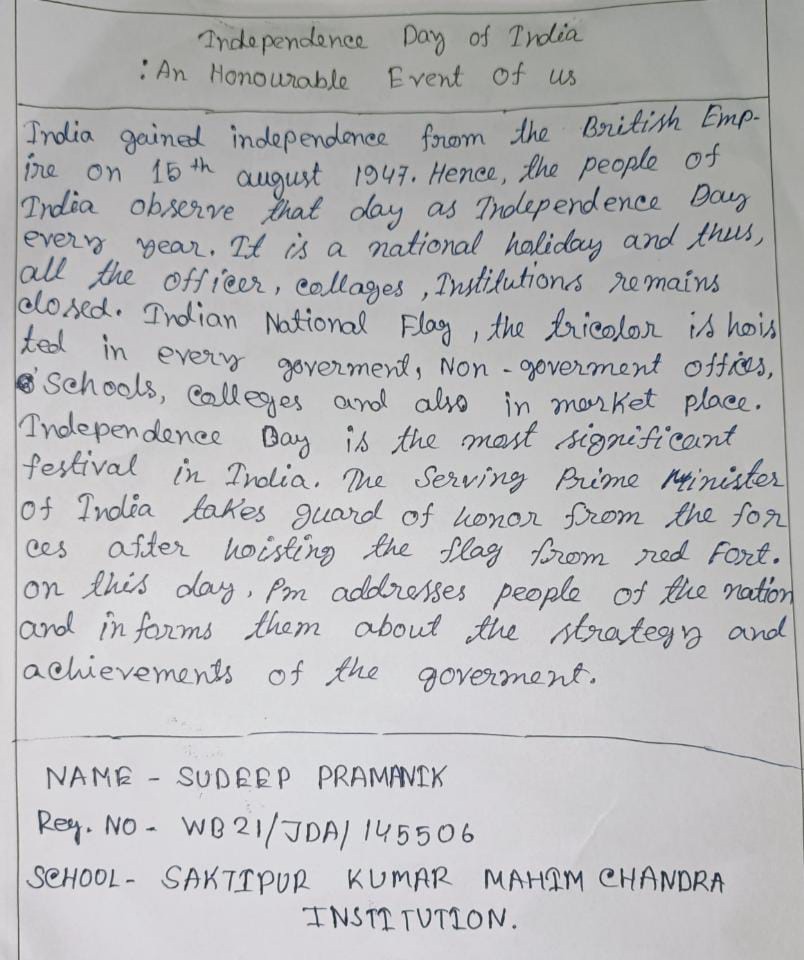 Independence Day of India
: An Honourable Event Of us
India gained independence from the British Emp-
ire on 15th august 1947. Hence, the people of
India observe that day as Independence Day
every year. It is a national holiday and thus,
all the officer, collages, Institutions remains
closed. Indian National Flag, the tricolor is hois
ted in every goverment, Non-goverment offices,
Schools, Colleges and also in market place.
Independence Day is the most significant
festival in India. The Serving Prime Minister
of India takes guard of honor from the for
ces after hoisting the flag from red Fort.
on this day, Pm addresses people of the nation
and informs them about the strategy and
achievements of the goverment.
NAME - SUDEEP PRAMANIK
Reg. NO - WB21/JDA/145506
SCHOOL - SAKTIPUR KUMAR MAHIM CHANDRA
INSTITUTION.